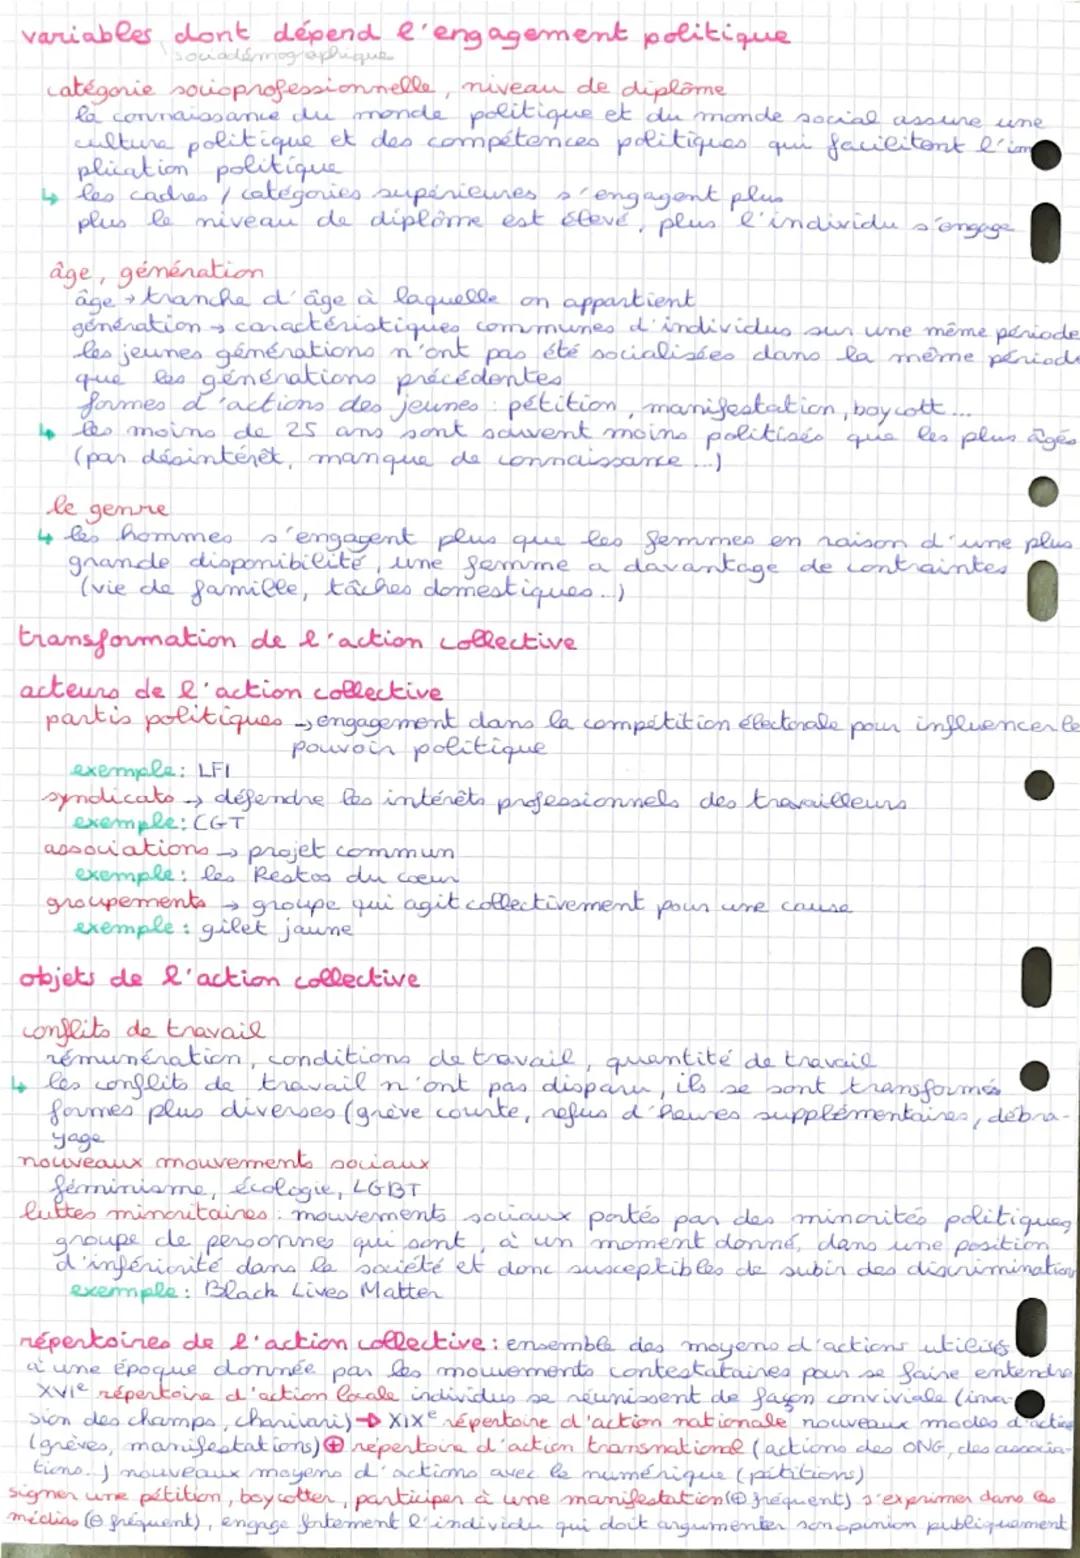 variables dont dépend l'engagement politique
sociodémographique
catégorie socioprofessionnelle, niveau de diplôme
la connaissance du monde politique et du monde social assure une
culture politique et des compétences politiques qui facilitent l'im
plication politique
↳ les cadres / catégories supérieures s'engagent plus
plus le niveau de diplôme est élevé, plus l'individu s'engage
âge, génération
âge → tranche d'âge à laquelle on appartient
génération → caractéristiques communes d'individus sur une même période
les jeunes générations n'ont pas été socialisées dans la même période
que les générations précédentes
formes d'actions des jeunes : pétition, manifestation, boycott...
↳ les moins de 25 ans sont souvent moins politisés que les plus âgés
(par désintérêt, manque de connaissance...)
le genre
↳ les hommes s'engagent plus que les femmes en raison d'une plus
grande disponibilité, une femme a davantage de contraintes
(vie de famille, tâches domestiques...)
transformation de l'action collective
acteurs de l'action collective
partis politiques → engagement dans la compétition électorale pour influencer le
pouvoir politique
exemple : LFI
syndicats → défendre les intérêts professionnels des travailleurs
exemple : CGT
associations → projet commun
exemple : les Restos du cœur
groupements → groupe qui agit collectivement pour une cause
exemple : gilet jaune
objets de l'action collective
conflits de travail
rémunération, conditions de travail, quantité de travail
↳ les conflits de travail n'ont pas disparu, ils se sont transformés
formes plus diverses (grève courte, refus d'heures supplémentaires, débra-
yage
nouveaux mouvements sociaux
féminisme, écologie, LGBT
luttes minoritaires : mouvements sociaux portés par des minorités politiques,
groupe de personnes qui sont, à un moment donné, dans une position
d'infériorité dans la société et donc susceptibles de subir des discrimination
exemple : Black Lives Matter
répertoires de l'action collective : ensemble des moyens d'actions utilisés
à une époque donnée par les mouvements contestataires pour se faire entendre
XVIe répertoire d'action locale individus se réunissent de façon conviviale (inva
sion des champs, charivari) → XIXe répertoire d'action nationale nouveaux modes d'action
(grèves, manifestations) ⊕ répertoire d'action transnational (actions des ONG, des associa-
tions..) nouveaux moyens d'actions avec le numérique (pétitions)
signer une pétition, boycotter, participer à une manifestation (⊕ fréquent) s'exprimer dans les
médias (⊖ fréquent), engage fortement l'individu qui doit argumenter son opinion publiquement